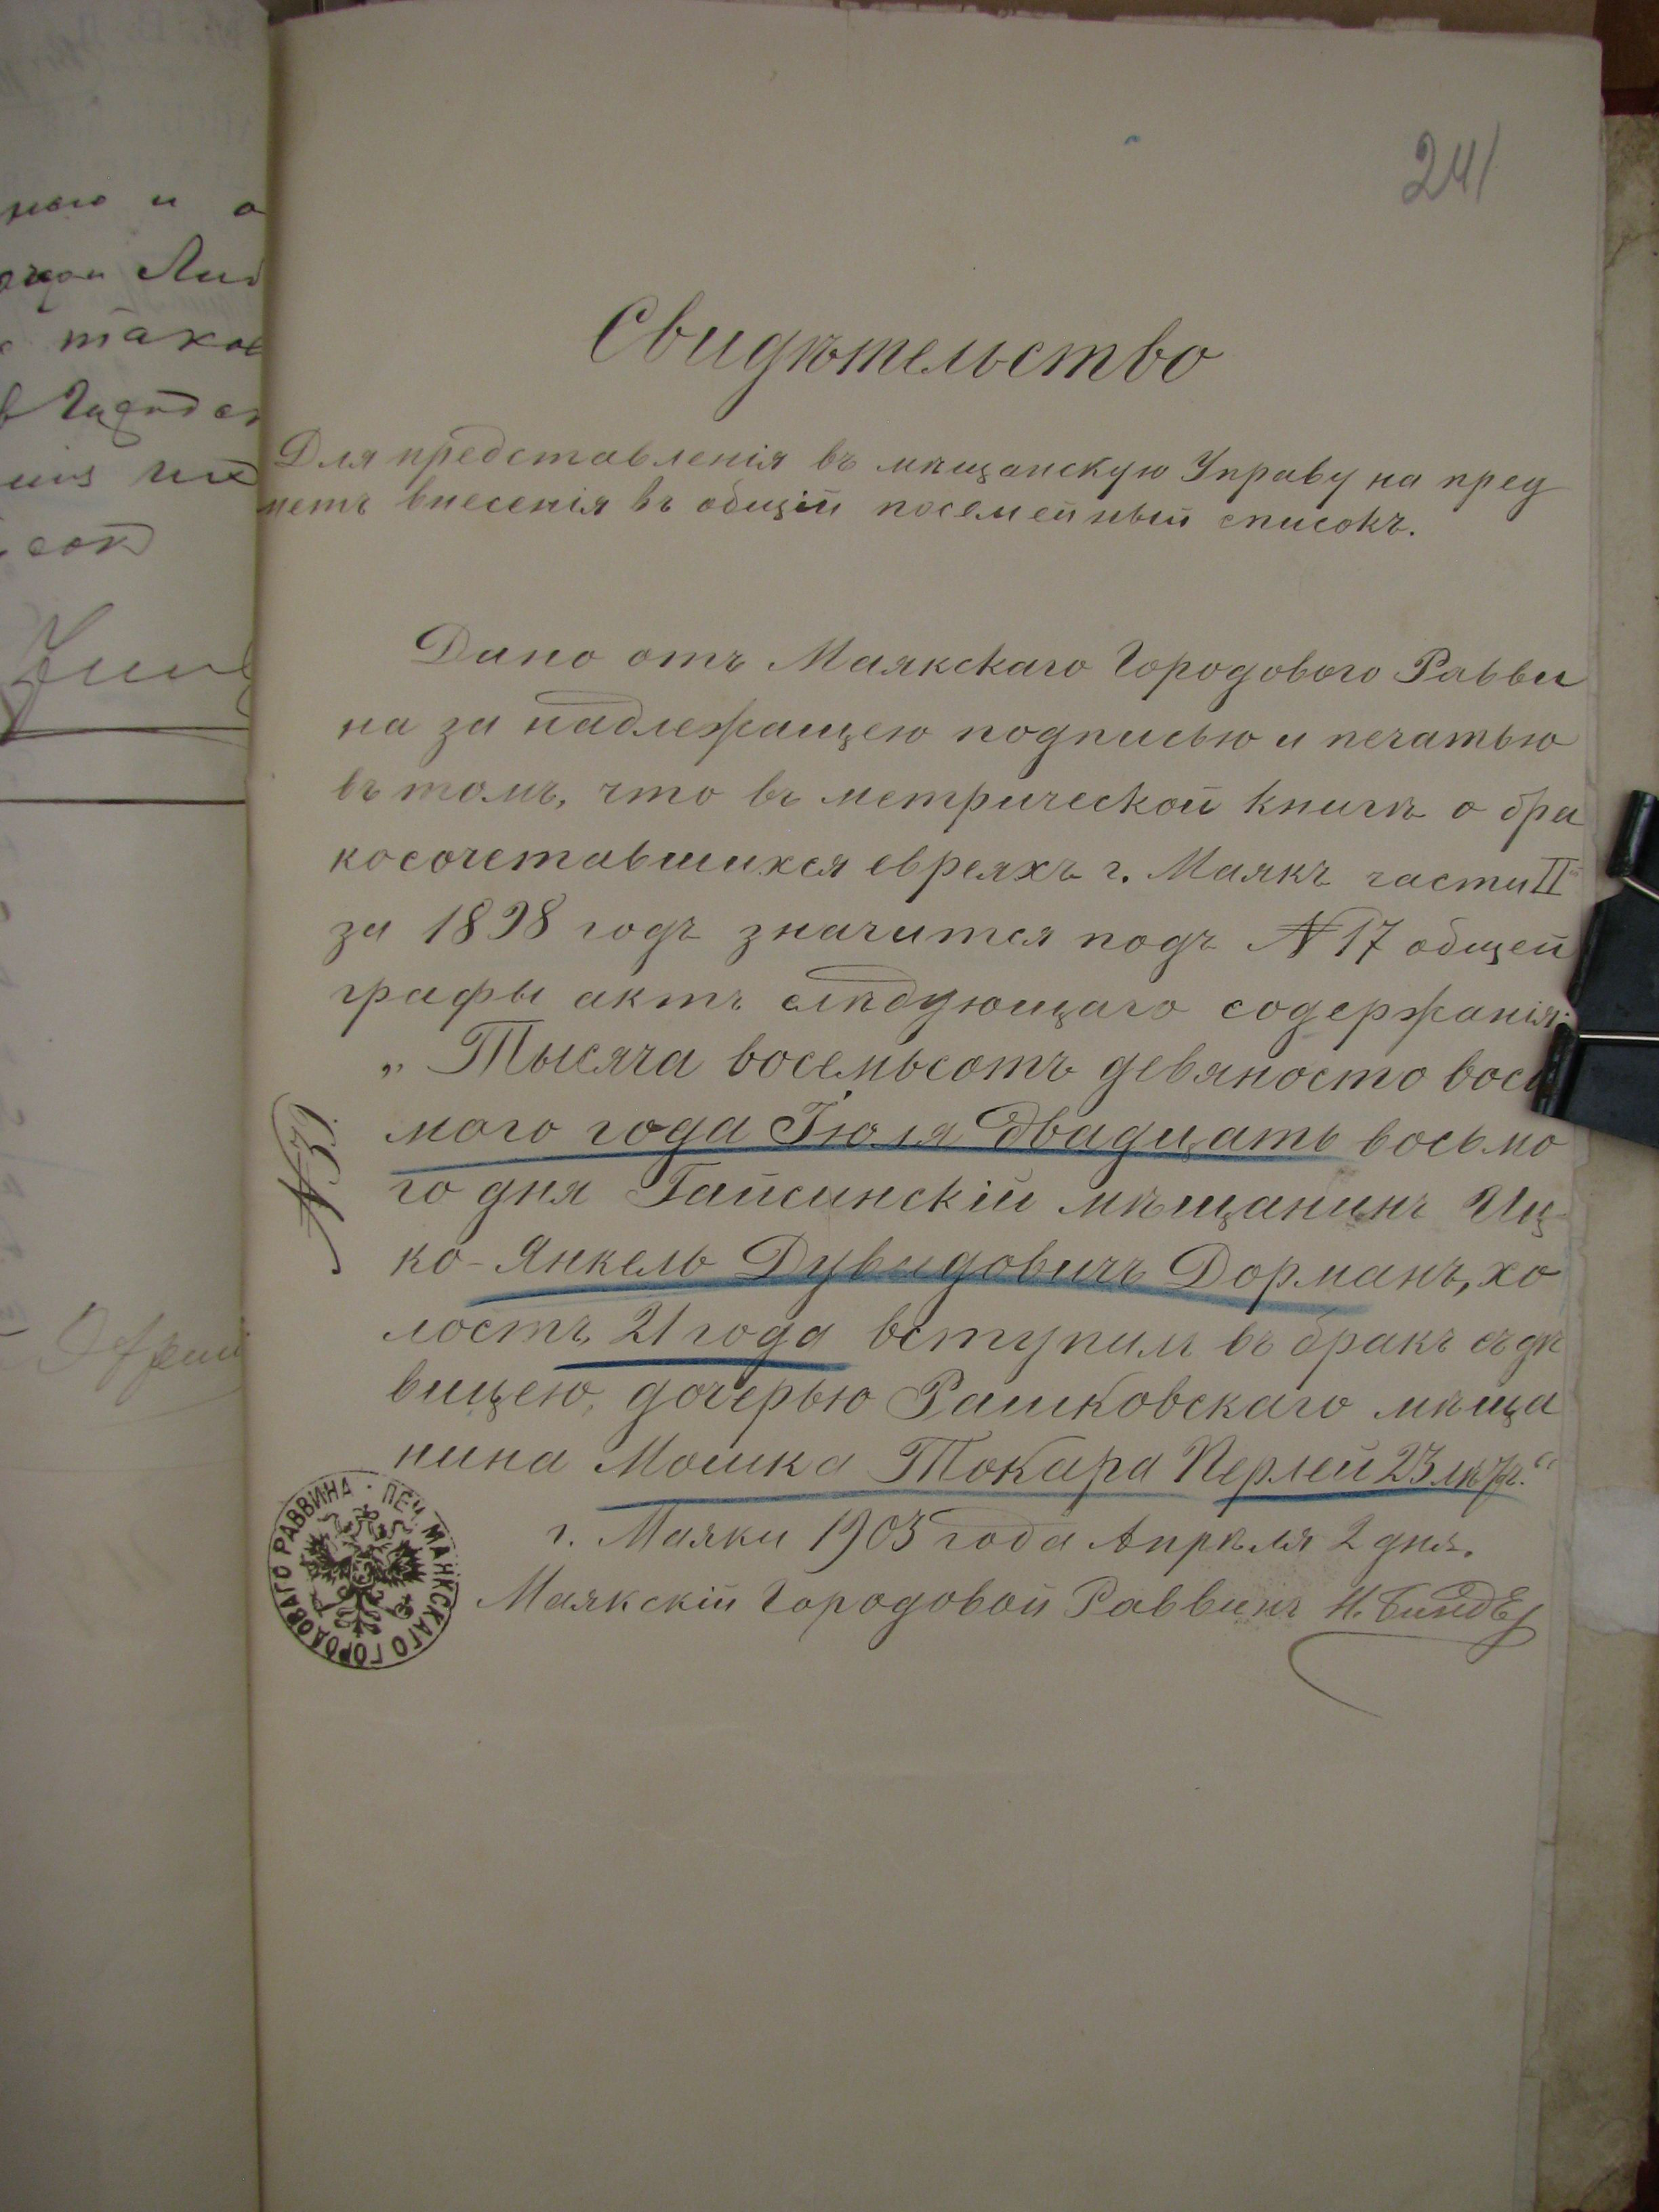 241
Свидѣтельство
Для представленія въ мѣщанскую Управу на пред
метъ внесенія въ общій посемейный списокъ.
Дано отъ Маякскаго Городового Равви
на за надлежащею подписью и печатью
въ томъ, что въ метрической книгѣ о бра
косочетавшихся евреяхъ г. Маякъ части II
за 1898 годъ значится подъ № 17 общей
графы актъ слѣдующаго содержанія:
„Тысяча восемьсотъ девяносто вось
мого года Іюля двадцать восьмо
го дня Гайсинскій мѣщанинъ Иц-
ко-Янкель Дувидовичъ Дорманъ, хо
лостъ, 21 года вступилъ въ бракъ съ дѣ
вицею, дочерью Рашковскаго мѣща
нина Мошка Токара Перлей 23 лѣтъ.“
г. Маяки 1903 года Апрѣля 2 дня.
Маякскій Городовой Раввинъ Н. Биндер
№ 31.
ПЕЧ. МАЯКСКАГО ГОРОДОВАГО РАВВИНА
ною и о
Лид
таков